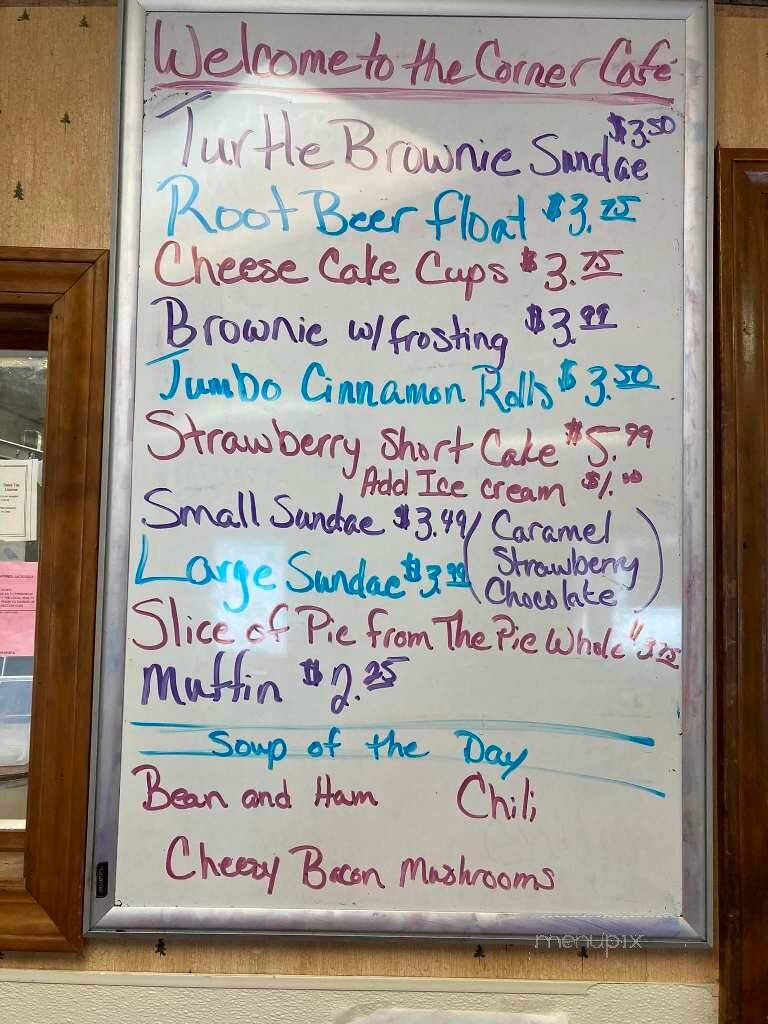 Welcome to the Corner Café
Turtle Brownie Sundae $3.50
Root Beer float $3.25
Cheese Cake Cups $3.75
Brownie w/frosting $3.99
Jumbo Cinnamon Rolls $3.50
Strawberry Short Cake $5.99
Add Ice cream $1.00
Small Sundae $3.49 (Caramel
Strawberry
Large Sundae $3.99 Chocolate)
Slice of Pie from The Pie Whole" 3.25
Muffin $2.25
Soup of the Day
Bean and Ham Chili
Cheesy Bacon Mushrooms
menupix